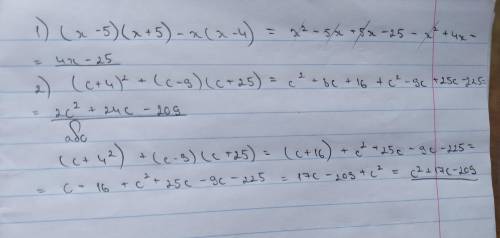 1) (x -5)(x+5) - x(x-4) = x² - 5x + 5x - 25 - x² + 4x =
= 4x - 25
2) (c+4)² + (c-9)(c+25) = c² + 8c + 16 + c² - 9c + 25c - 225 =
= 2c² + 24c - 209
або
(c + 4²) + (c-9)(c+25) = (c+16) + c² + 25c - 9c - 225 =
= c - 16 + c² + 25c - 9c - 225 = 17c - 209 + c² = c² + 17c - 209